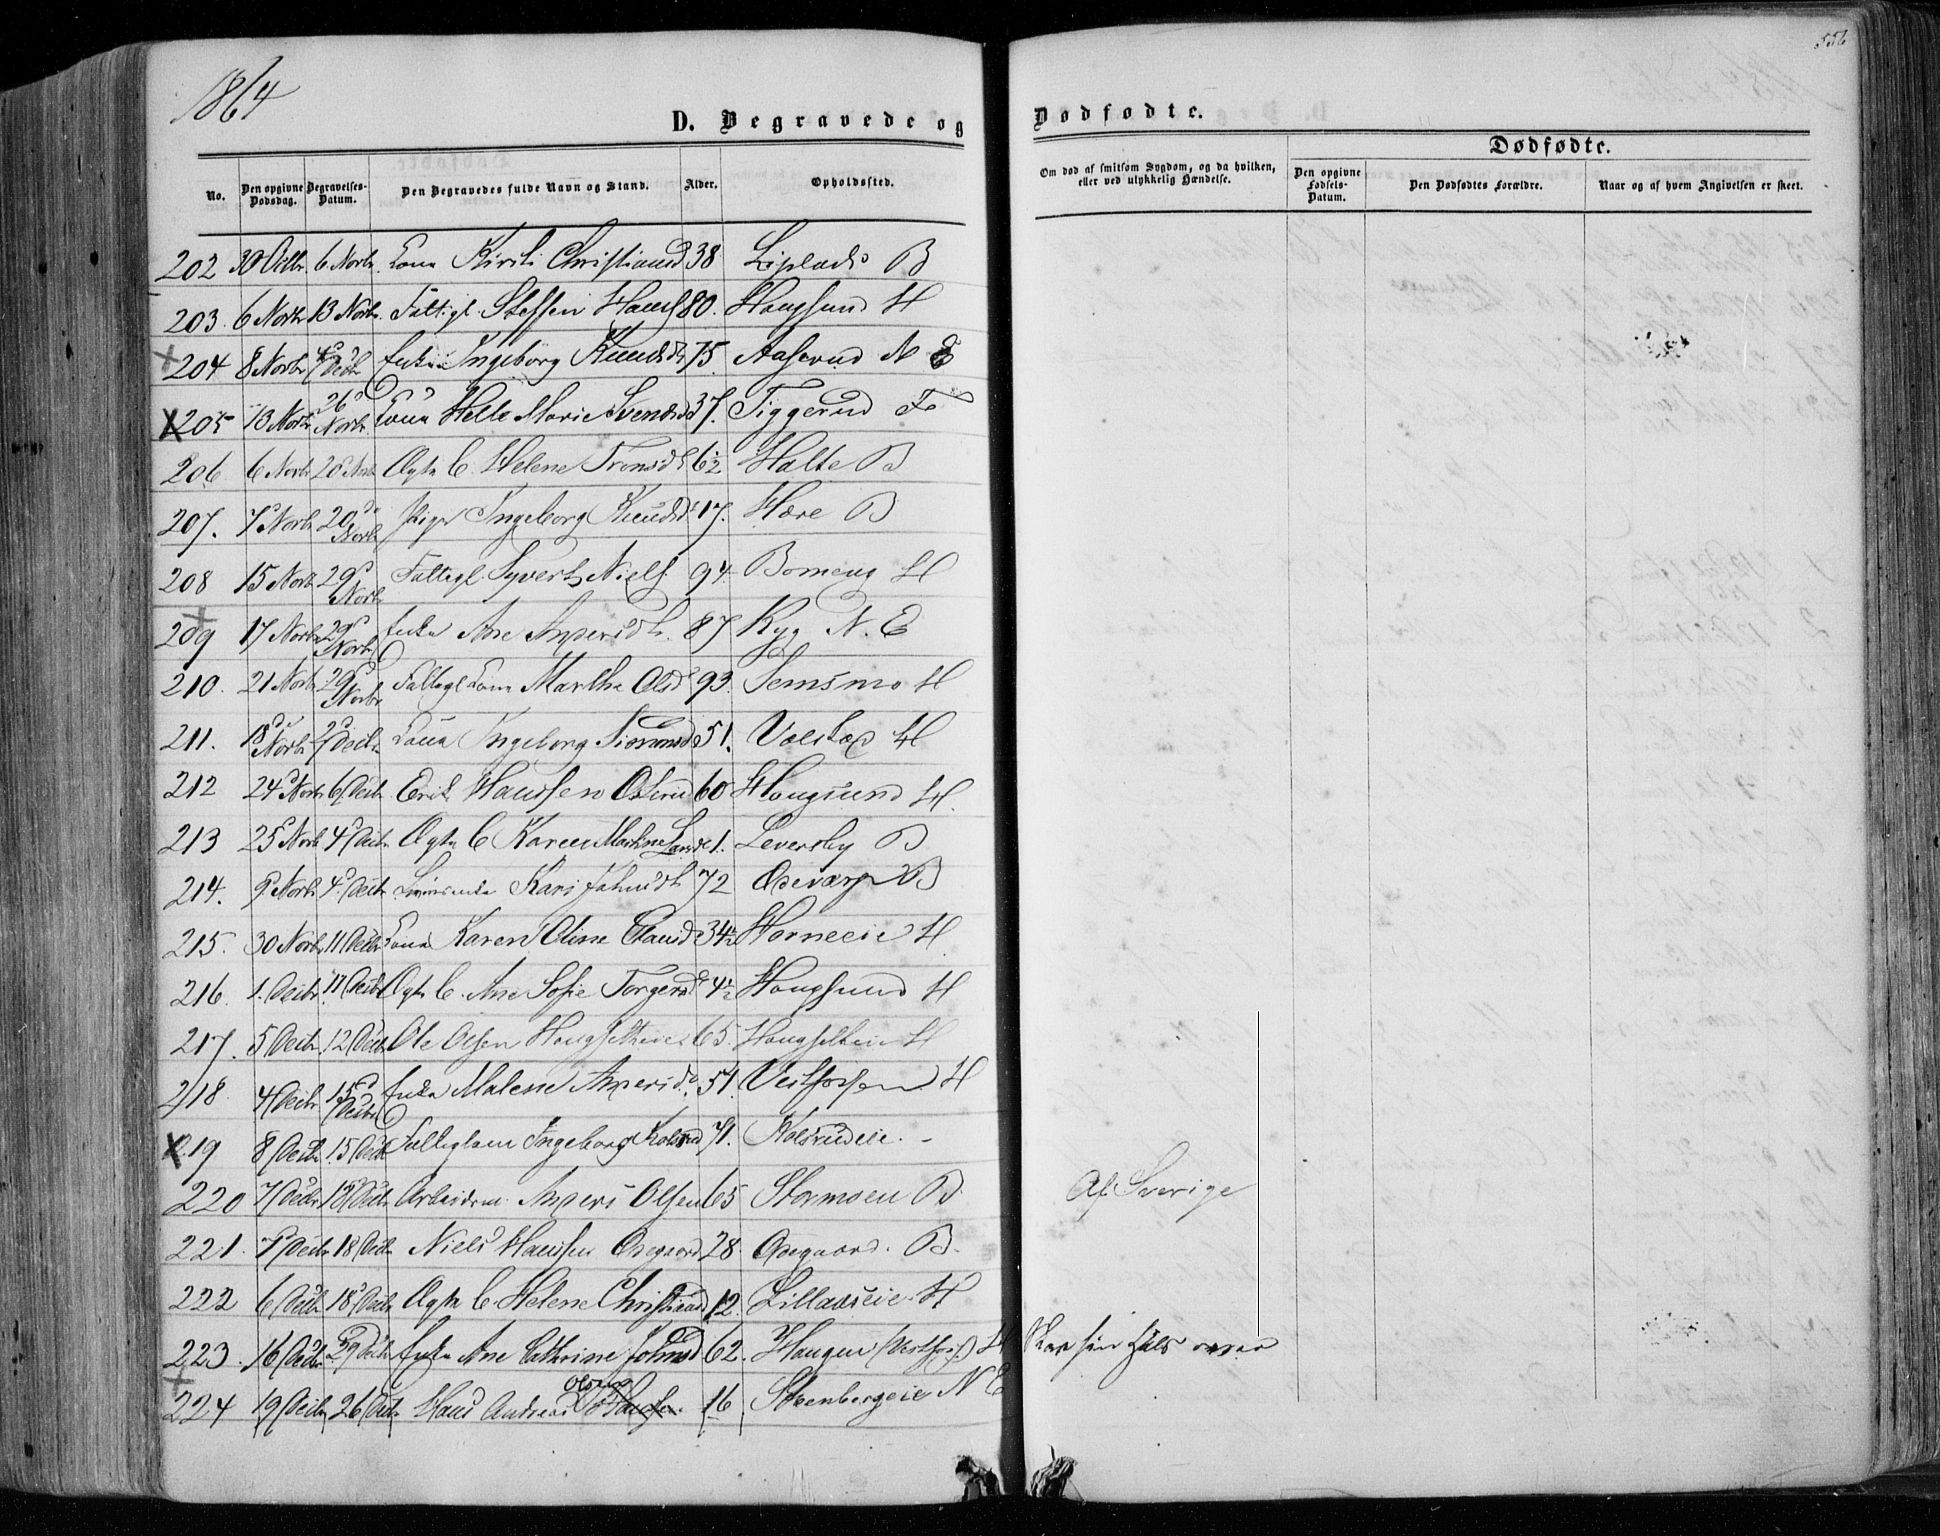 1864
556
D. Begravede og Dødfødte.
Dødfødte.
No. Den opgivne Dødsdag. Begravelses-Datum. Den Begravedes fulde Navn og Stand. Alder. Opholdssted. Om død af smitsom Sygdom, og da hvilken, eller ved ulykkelig Hændelse. Den opgivne Fødsels-Datum. Den Dødfødtes Forældre. Naar og af hvem Angivelsen er skeet.
202 30 Octbr. 6 Novbr. Kone Kirsti Christiansd 38 B
203. 6 Novbr 13 Novbr. Fattigl. Steffen Hans. 80. Hougsund H
204 8 Novbr Decbr Enke Ingeborg Knudsdt 75. Aaserud N E
205 13 Novbr 26 Novbr. Kone Helle Marie Svendsd 37. Tiggerud F
206 6 Novbr 20 Novbr Ægte B. Helene Tronsdt 6½ Halte B
207. 7 Novbr 20 Novbr Pige Ingeborg Knudsdt 17. Hære B
208 15 Novbr 29 Novbr Fattigl. Syvert Niels. 94 Bomeng H
209 17 Novbr 29 Novbr Enke Ane Andersdt. 87 Ryg N. E
210. 21 Novbr 29 Novbr Fattigl Kone Marthe Olsd 93. Semsmo H
211. 18 Novbr 2 Decbr. Kone Ingeborg Simonsd 51. Volstad H
212 24 Novbr 6 Decbr. Erik Hanssen 60 Hougsund H.
213 25 Novbr 4 Decbr. Ægte B Karen Mathne Larsd 1. Leversby B
214. 9 Novbr 4 Decbr Kari Johnsdt 72 B
215. 30 Novbr 11 Decbr Kone Karen Oline Clausd 34½ Horneeie H
216. 1. Decbr. 11 Decbr Ægte B. Ane Sofie Torgersd 4½ Hougsund H
217. 5 Decbr. 12 Decbr Ole Olsen 65. H
218. 4 Decbr 15 Decbr Enke Malene Andersd. 51. Vestfossen H
219 8 Decbr 15 Decbr Fattiglem Ingeborg Kolsrud 71. Kolsrudeie. -
220 7 Decbr. 18 Decbr Arbeidsm. Anders Olsen 65 Stormoen B. Af Sverige
221. 7 Decbr 18 Decbr Niels Hanssen Opegaard 28. Opegaard. B.
222 6 Decbr 18 Decbr Ægte B. Helene Christiansd 12. Lillaaseie. H
223. 16 Decbr 29 Decbr Enke Ane Cathrine Johnsd 62. Haugen (Vestfos.) H Skar sin Hals over
224 19 Decbr 26 Decbr Hans Andreas Olsen 16 Steenbergeie N E